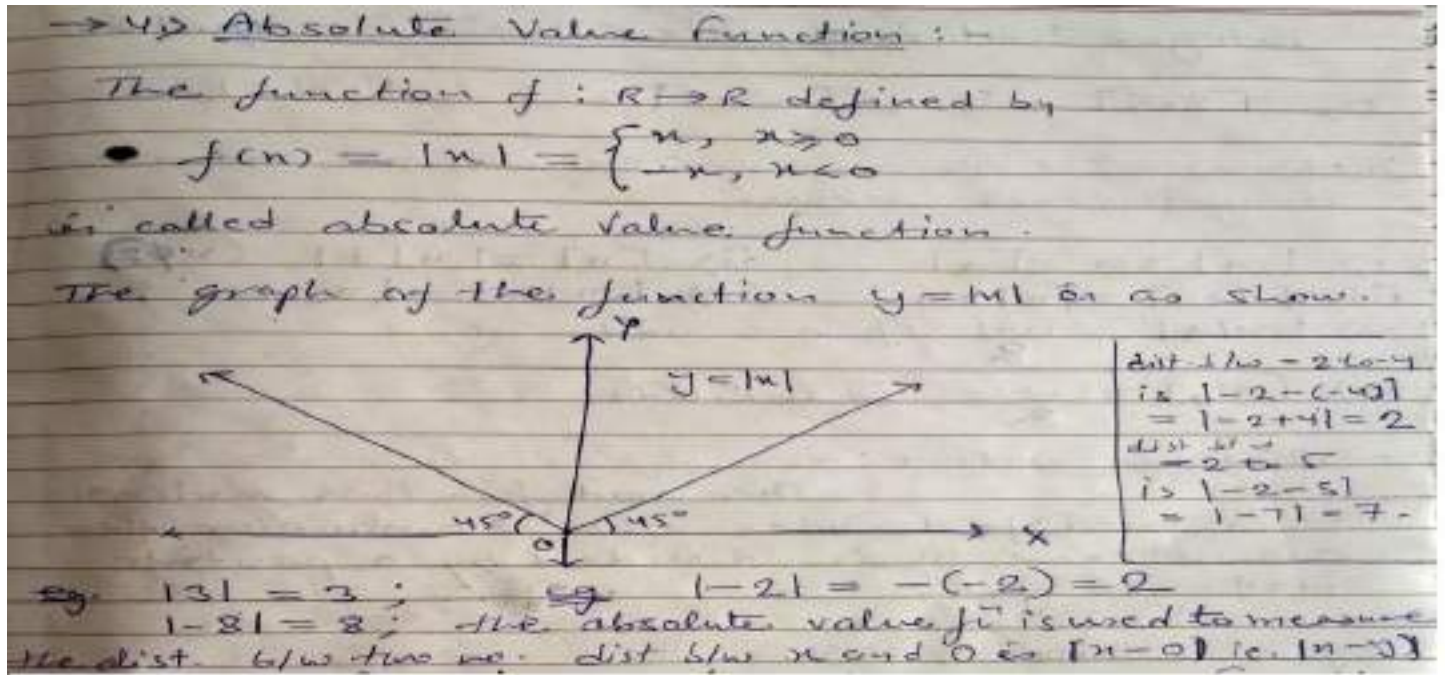 → 4) Absolute Value Function :-
The function f : R → R defined by
• f(x) = |x| = { x, x ≥ 0
{ -x, x < 0
is called absolute value function.
The graph of the function y = |x| is as show.
Y
y = |x|
45°
45°
O
X
dist b/w -2 to -4
is |-2-(-4)|
= |-2+4| = 2
dist b/w
-2 to 5
is |-2-5|
= |-7| = 7.
eg. |3| = 3 ; eg. |-2| = -(-2) = 2
|-8| = 8 ; the absolute value fⁿ is used to measure
the dist. b/w two no. dist b/w x and 0 is |x-0| ie.